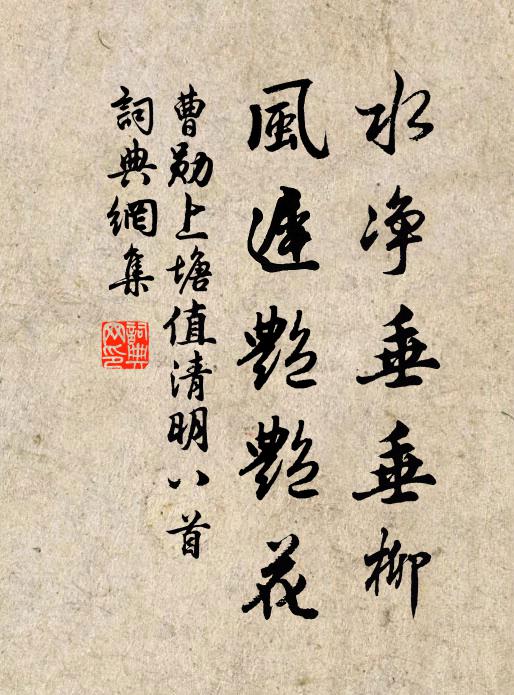 水净垂垂柳
風遲艷艷花
曹勋上塘值清明八首
詞典網集
詞典網印